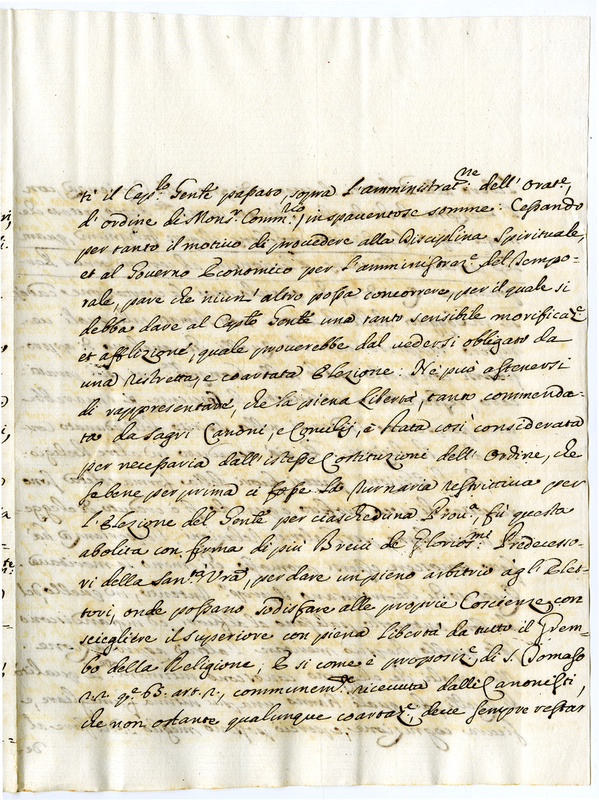 ti il Cap.lo Gen.le passato, sopra l'amministrat.ne dell' Orat.e,
d'ordine di Mons.r Comm.rio, in spaventose somme: Cessando
per tanto il motivo di provedere alla Disciplina Spirituale,
et al Governo Economico per l'amministraz.e del Tempo-
rale, pare che niun' altro possa concorrere, per il quale si
debba dare al Cap.lo Gen.le una tanto sensibile morificaz.e
et afflizione, quale proverebbe dal vedersi obligato da
una ristretta, e coartata Elezione: Nè può astenersi
di rappresentare, che la piena Libertà, tanto commenda-
ta da Sagri Canoni, e Concilij, è stata così considerata
per necessaria dall' istesse Costituzioni dell' Ordine, che
se bene per prima ci fosse la turnaria restrittiva per
l'Elezione del Gen.le per ciascheduna Prov.a, fù questa
abolita con firma di più Brevi de Glorios.mi Predecesso-
ri della San.tà V.ra, per dare un pieno arbitrio agli Elet-
tori, onde possano sodisfare alle proprie Coscienze con
sciegliere il superiore con piena Libertà da tutto il Grem-
bo della Religione, E si come è proposiz.e di S. Tomaso
2.2. q.e 63. art. 2., communem.te ricevuta dalli Canonisti,
che non ostante qualunque coartaz.e, deve sempre restar